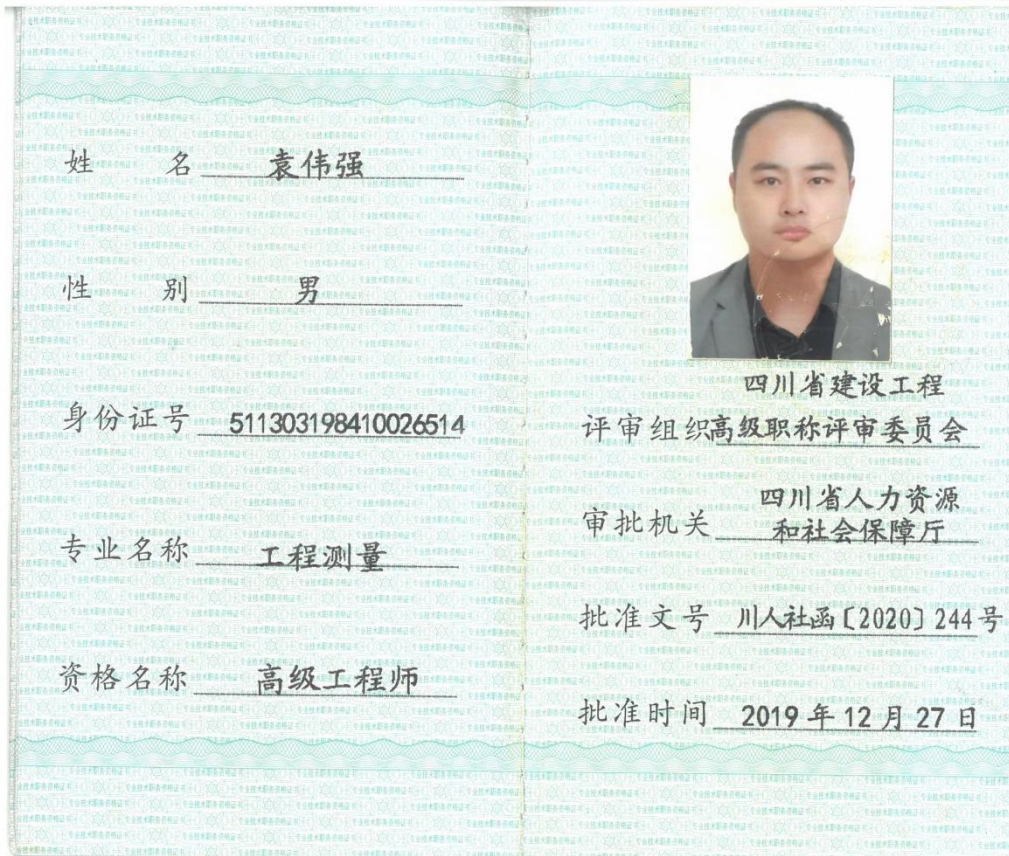 姓 名 袁伟强
性 别 男
身份证号 511303198410026514
专业名称 工程测量
资格名称 高级工程师
四川省建设工程
评审组织 高级职称评审委员会
四川省人力资源
审批机关 和社会保障厅
批准文号 川人社函〔2020〕244号
批准时间 2019 年 12 月 27 日